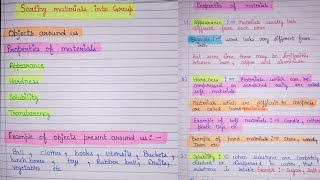 Sorting materials into Group
Objects around us
Properties of materials
Appearance
Hardness
Solubility
Transparency
Example of objects present around us :-
Ball, clothes, books, utensils, Buckets,
lunch boxes, toys, Rubber balls, fruits,
Vegetables etc
Properties of materials
Appearance :- Materials usually look
different from each other.
wood looks very different from
iron.
But same time there may be similarities
between iron, copper and aluminium.
Hardness :- Materials which can be
compressed or scratched easily are called
soft materials
Materials which are difficult to compress
are called hard materials.
Example of soft materials :- Candle, cotton
etc
Example of hard materials :- Stone, wood,
Iron etc
Solubility :- when substance are completely